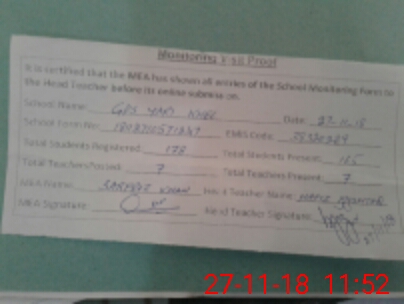 Monitoring Visit Proof
It is certified that the MEA has shown all entries of the School Monitoring Form to
the Head Teacher before its online submission.
School Name: GPS Date: 27-11-18
School Form No: EMIS Code:
Total Students Registered: 178 Total Students Present: 165
Total Teachers Posted: 7 Total Teachers Present: 7
MEA Name: SARFRAZ KHAN Head Teacher Name:
MEA Signature: Head Teacher Signature:
27-11-18 11:52